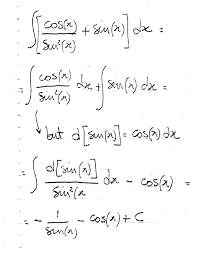 ∫[cos(x)/sin²(x) + sin(x)] dx =
= ∫ cos(x)/sin²(x) dx + ∫ sin(x) dx =
↓ but d[sin(x)] = cos(x) dx
= ∫ d[sin(x)]/sin²(x dx - cos(x) =
= - 1/sin(x) - cos(x) + C